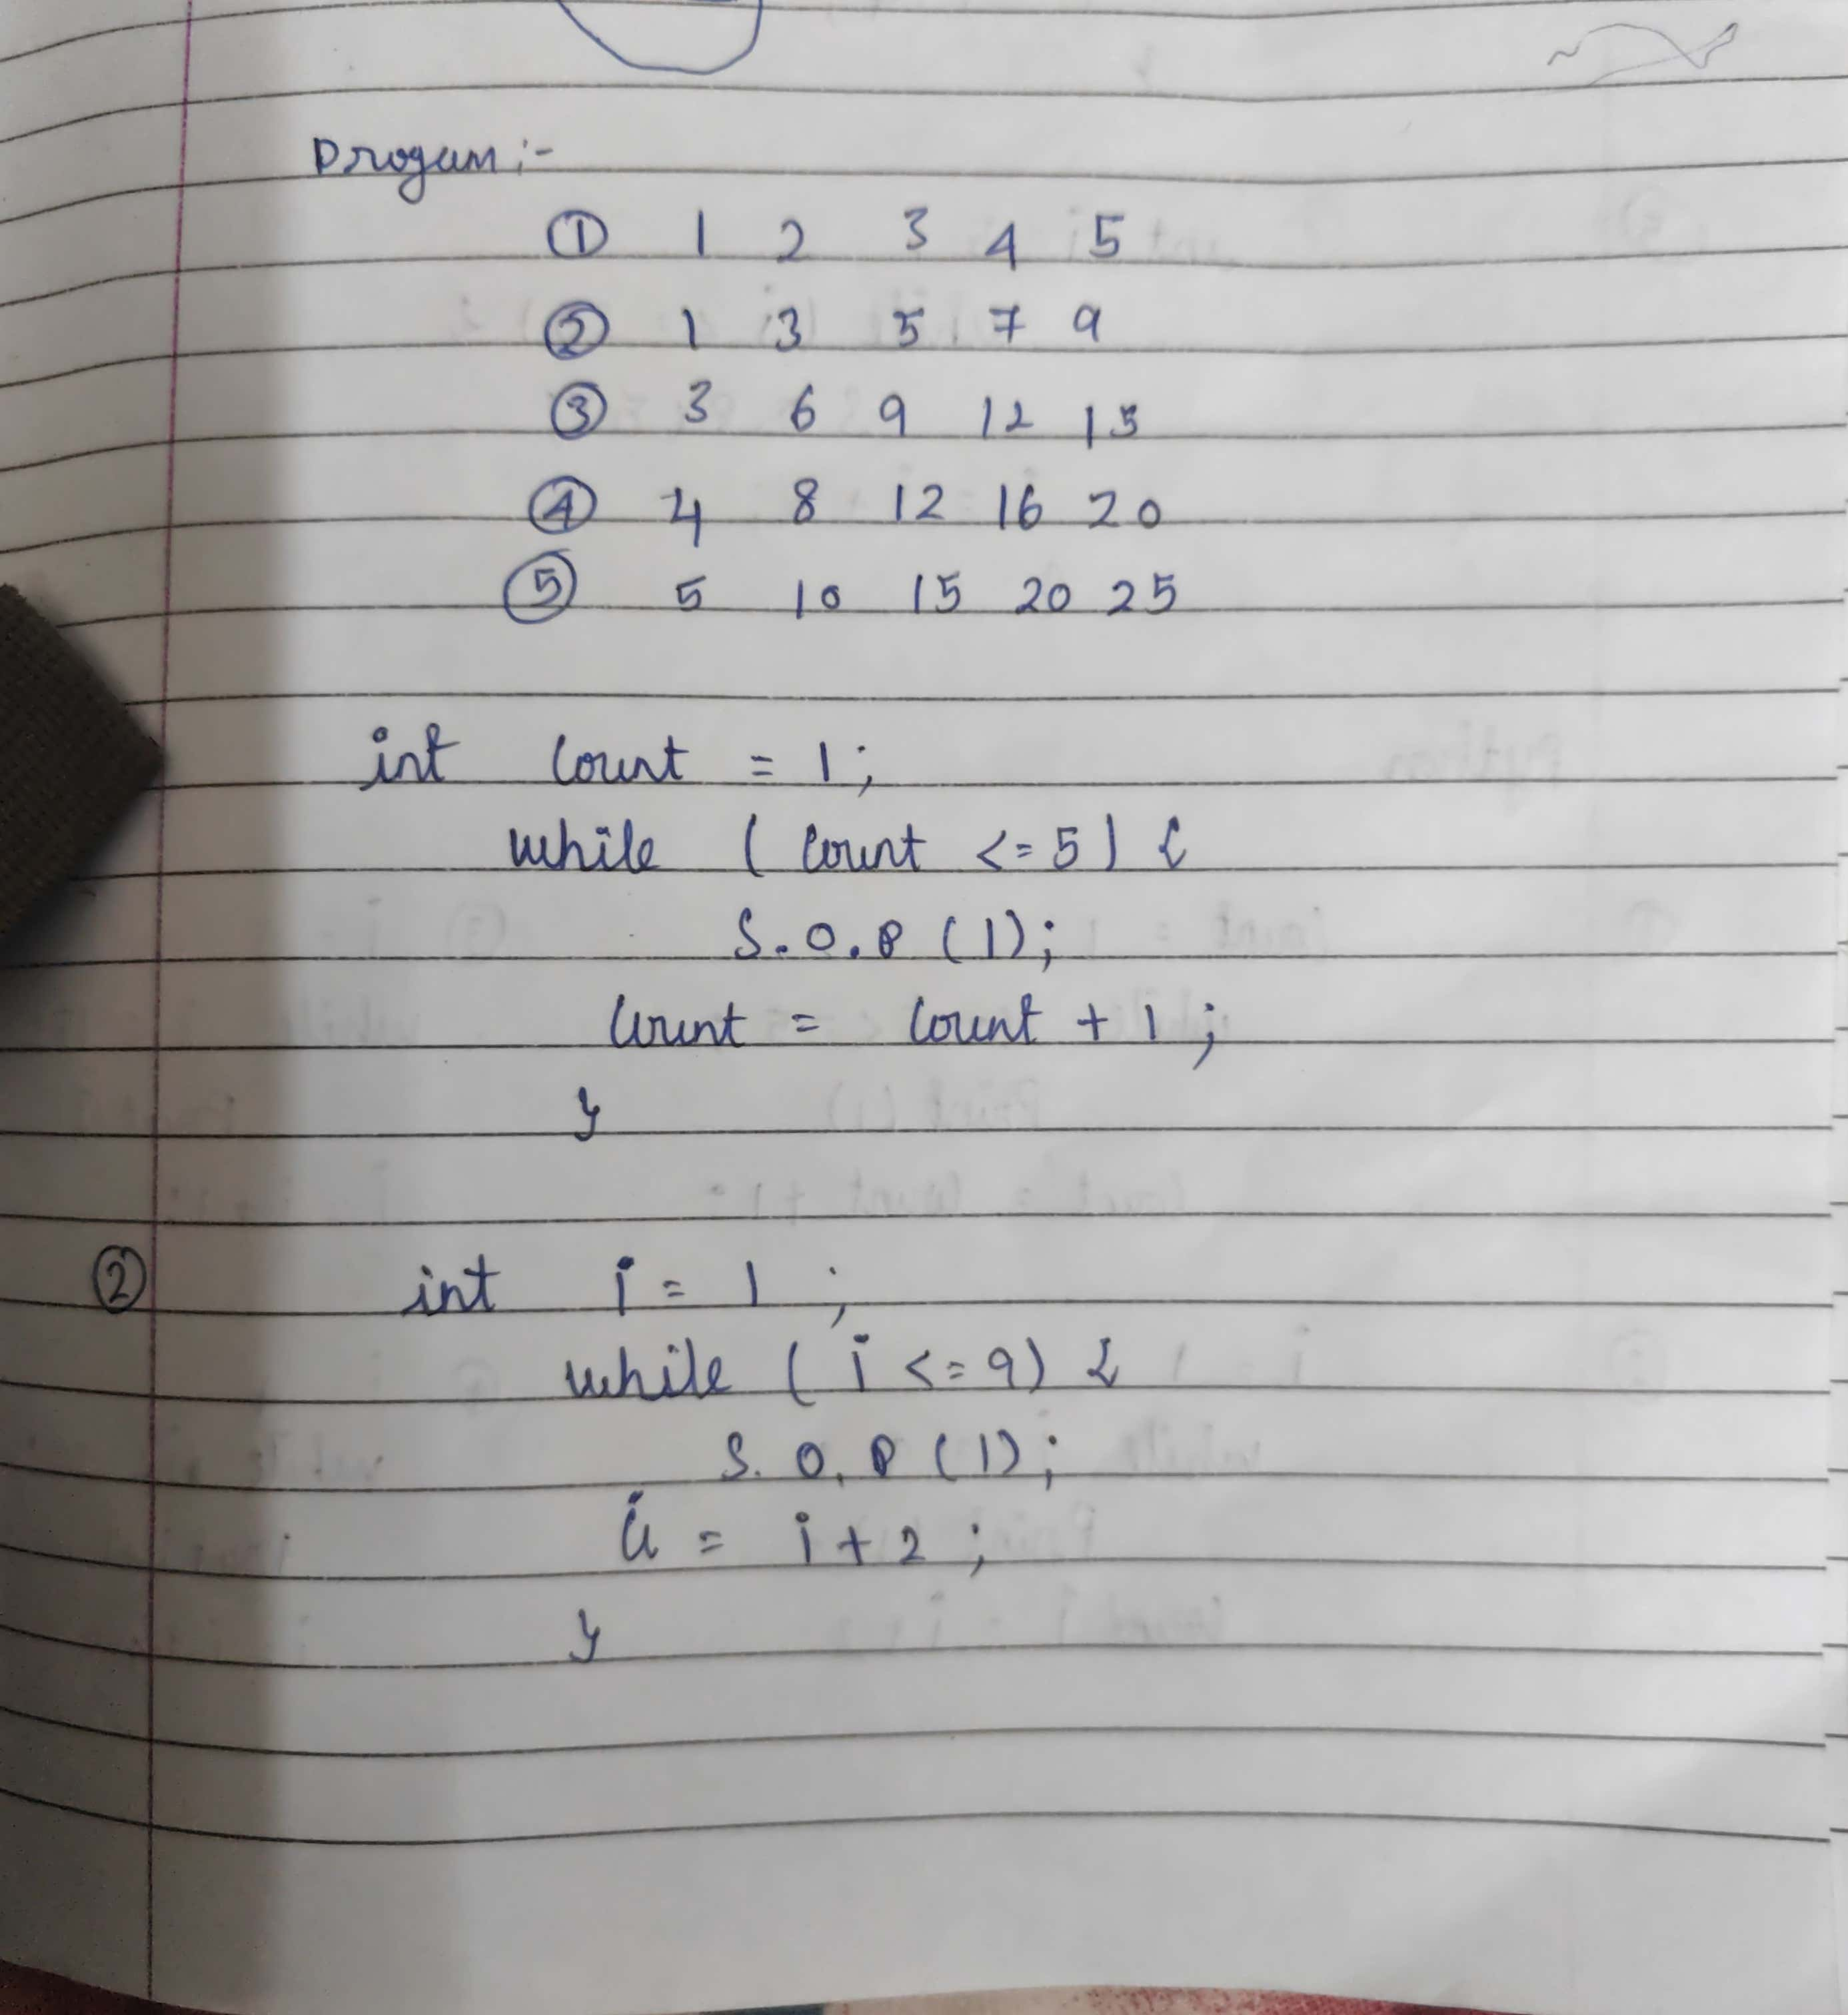 Progam :-
① 1 2 3 4 5
② 1 3 5 7 9
③ 3 6 9 12 15
④ 4 8 12 16 20
⑤ 5 10 15 20 25
int count = 1;
while ( count <= 5 ) {
S.O.P (1);
count = count + 1 ;
}
② int i = 1 ;
while ( i <= 9 ) {
S.O.P (1);
i = i + 2 ;
}